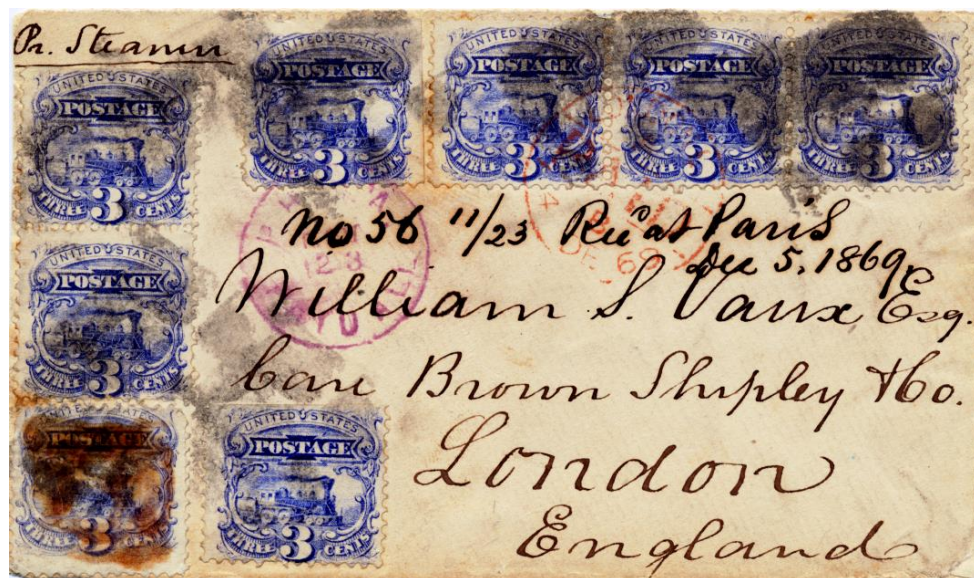 Pr. Steamer
UNITED STATES POSTAGE THREE 3 CENTS
UNITED STATES POSTAGE THREE 3 CENTS
UNITED STATES POSTAGE THREE 3 CENTS
UNITED STATES POSTAGE THREE 3 CENTS
UNITED STATES POSTAGE THREE 3 CENTS
UNITED STATES POSTAGE THREE 3 CENTS
UNITED STATES POSTAGE THREE 3 CENTS
UNITED STATES POSTAGE THREE 3 CENTS
No 56 11/23 Rec at Paris
Dec 5, 1869
William S. Vaux, Esq.
Care Brown Shipley & Co.
London
England